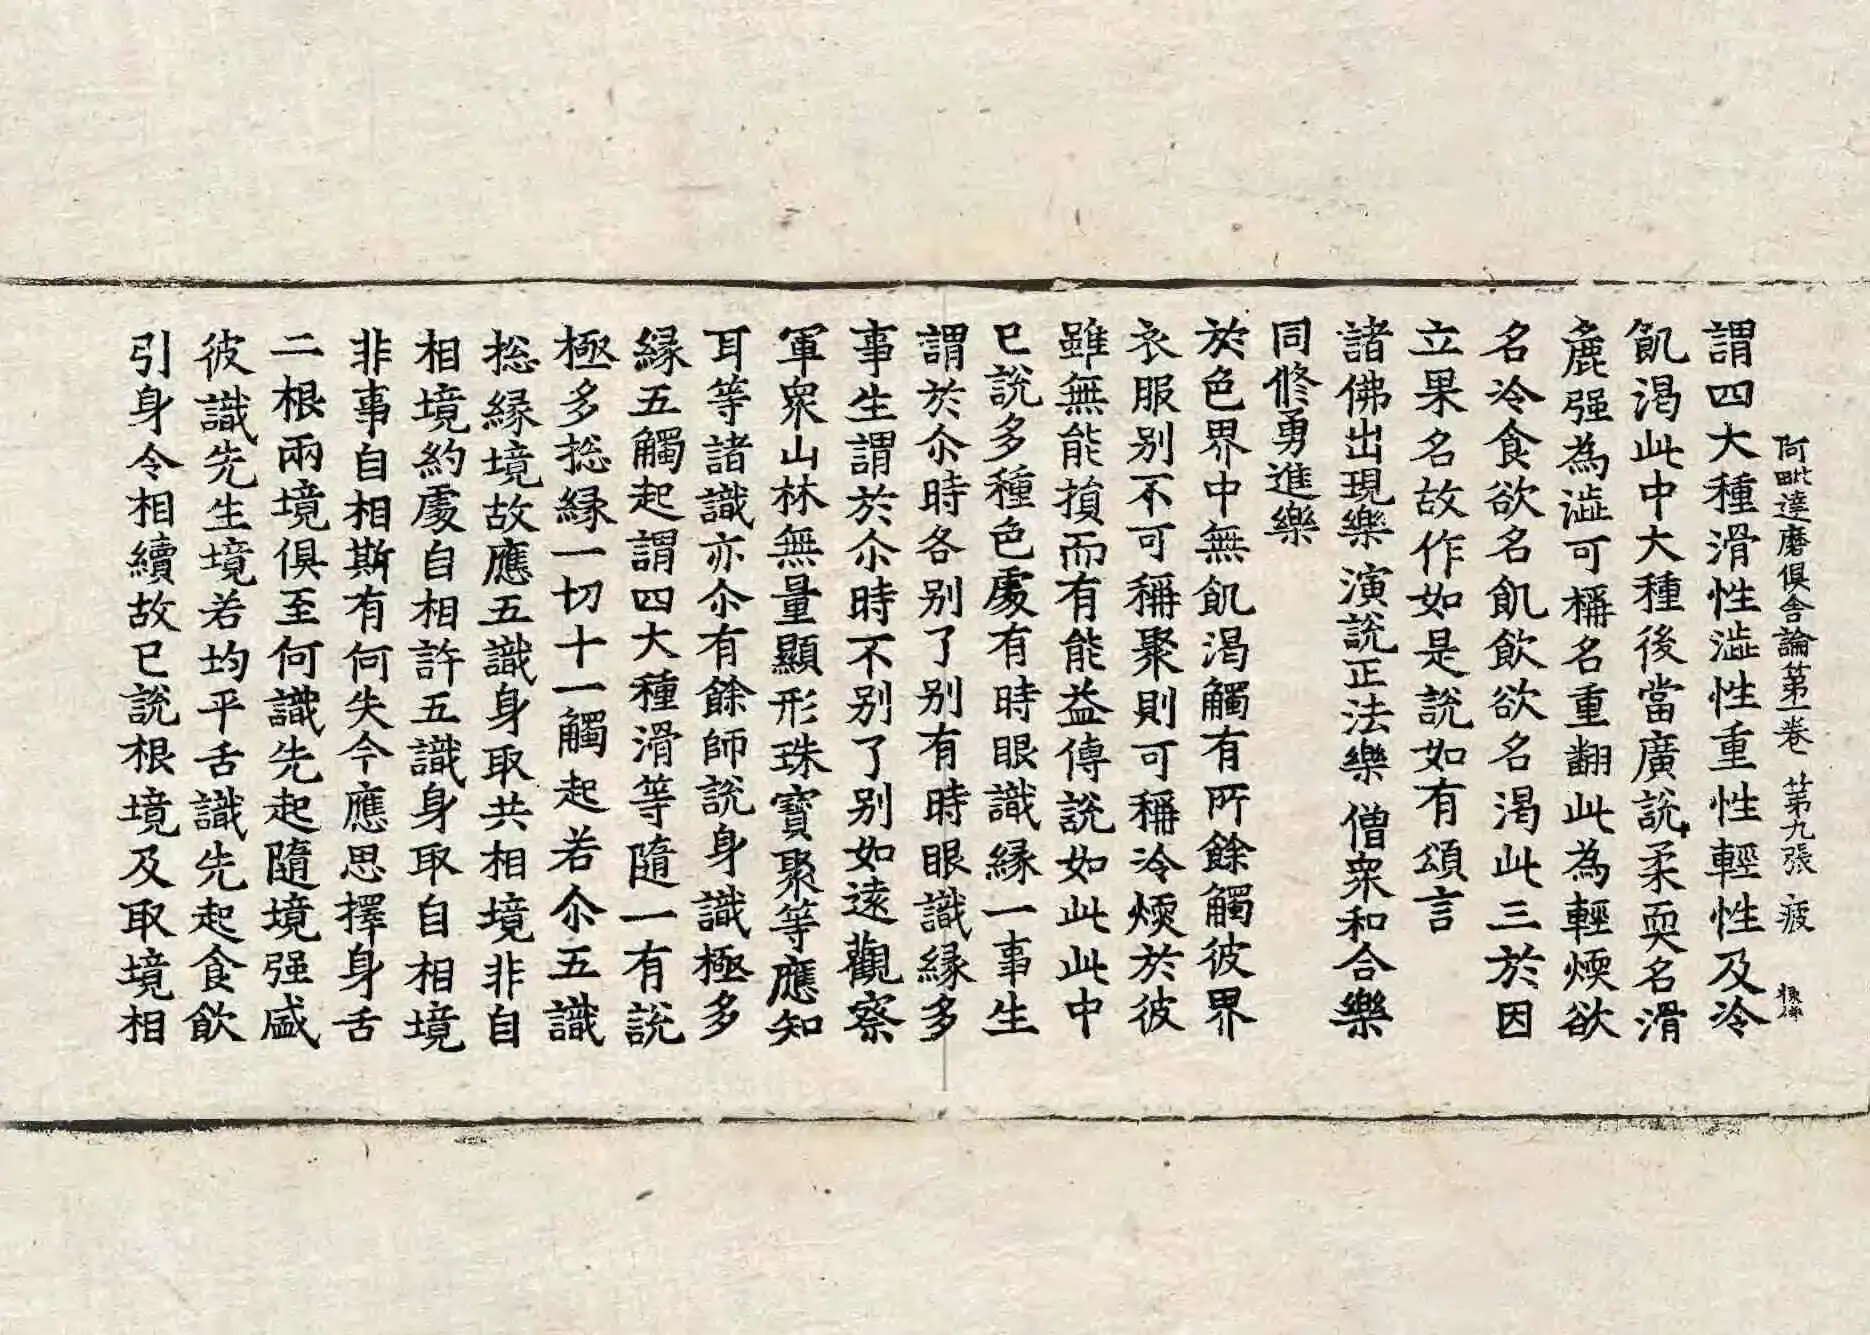 阿毗達磨俱舍論第一卷 第九張 疲
謂四大種滑性澁性重性輕性及冷
飢渴此中大種後當廣說柔耎名滑
麁强為澁可稱名重翻此為輕煗欲
名冷食欲名飢飲欲名渴此三於因
立果名故作如是說如有頌言
諸佛出現樂 演說正法樂 僧衆和合樂
同修勇進樂
於色界中無飢渴觸有所餘觸彼界
衣服别不可稱聚則可稱冷煗於彼
雖無能損而有能益傳說如此此中
已說多種色處有時眼識緣一事生
謂於尒時各别了别有時眼識緣多
事生謂於尒時不别了别如遠觀察
軍衆山林無量顯形珠寶聚等應知
耳等諸識亦尒有餘師說身識極多
緣五觸起謂四大種滑等隨一有說
極多捴緣一切十一觸起若尒五識
捴緣境故應五識身取共相境非自
相境約處自相許五識身取自相境
非事自相斯有何失今應思擇身舌
二根兩境俱至何識先起隨境强盛
彼識先生境若均平舌識先起食飲
引身令相續故已說根境及取境相